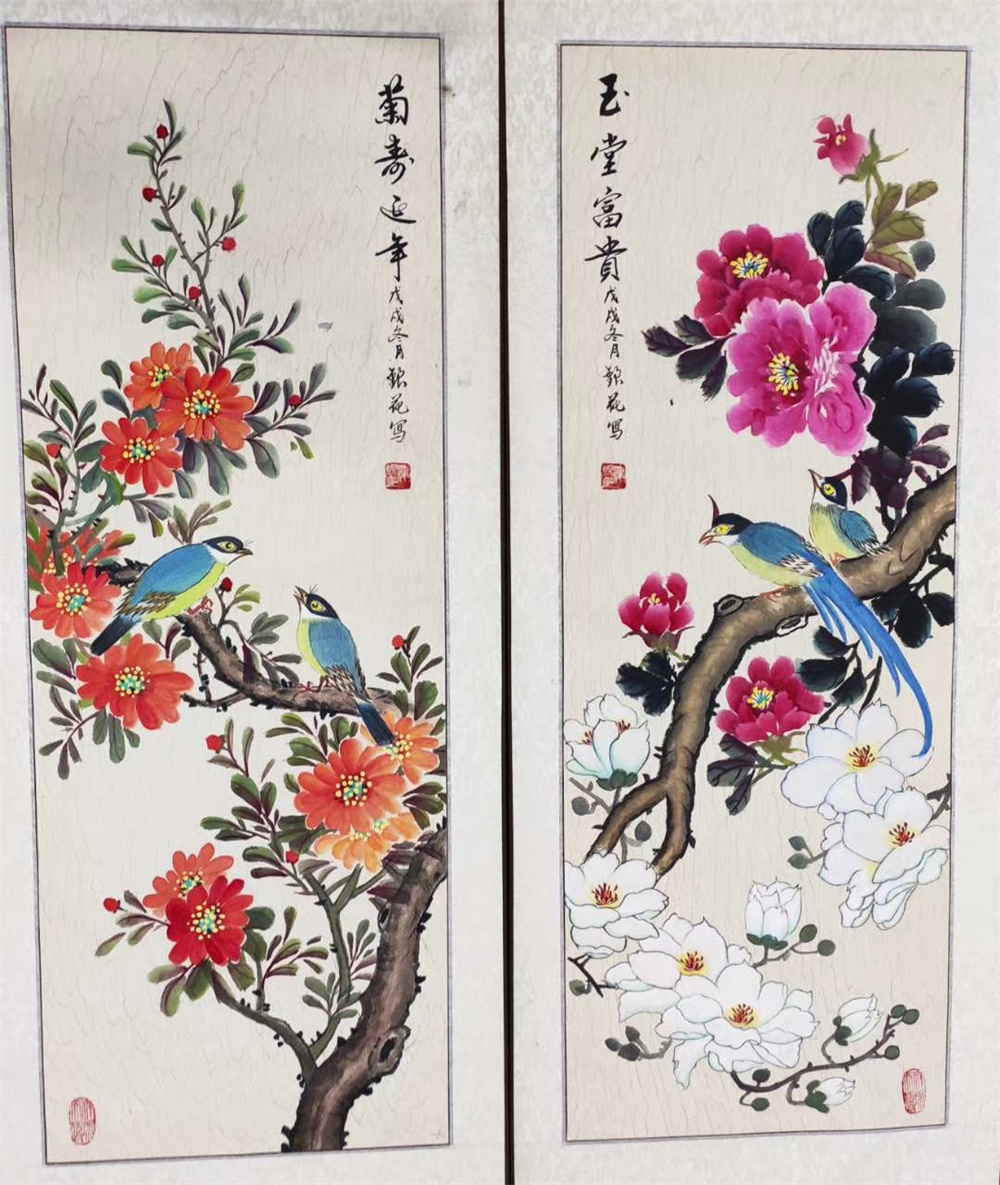 菊寿延年
戊戌冬月银花写
玉堂富貴
戊戌冬月银花写